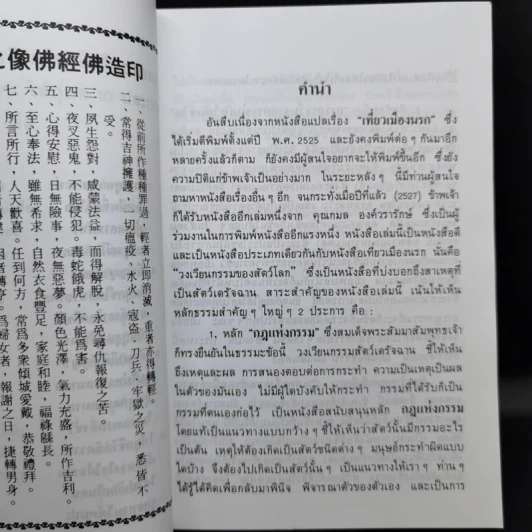 印造佛經佛像之
一、從前所作種種罪過，輕者立即消滅，重者亦得轉輕。
二、常得吉神擁護，一切瘟疫、水火、寇盜、刀兵、牢獄之災，悉皆不
受。
三、夙生怨對，咸蒙法益，而得解脫，永免尋仇報復之苦。
四、夜叉惡鬼，不能侵犯。毒蛇餓虎，不能為害。
五、心得安慰，日無險事，夜無惡夢。顏色光澤，氣力充盛，所作吉利。
六、至心奉法，雖無希求，自然衣食豐足，家庭和睦，福祿緜長。
七、所言所行，人天歡喜。任到何方，常為多眾傾城愛戴，恭敬禮拜。
為婦女者，報謝之日，捷轉男身。
คำนำ
อันสืบเนื่องจากหนังสือแปลเรื่อง "เที่ยวเมืองนรก" ซึ่ง
ได้เริ่มตีพิมพ์ตั้งแต่ปี พ.ศ. 2525 และยังคงพิมพ์ต่อ ๆ กันมาอีก
หลายครั้งแล้วก็ตาม ก็ยังคงมีผู้สนใจอยากจะให้พิมพ์ขึ้นอีก ซึ่งยัง
ความปิติแก่ข้าพเจ้าเป็นอย่างมาก ในระยะหลัง ๆ นี้มีท่านผู้สนใจ
ถามหาหนังสือเรื่องอื่น ๆ อีก จนกระทั่งเมื่อปีที่แล้ว (2527) ข้าพเจ้า
ก็ได้รับหนังสืออีกเล่มหนึ่งจาก คุณกมล องค์วรารักษ์ ซึ่งเป็นผู้
ร่วมงานในการพิมพ์หนังสืออีกแรงหนึ่ง หนังสือเล่มนี้เป็นหนังสือดี
และเป็นหนังสือประเภทเดียวกันกับหนังสือเที่ยวเมืองนรก นั่นคือ
"วงเวียนกรรมของสัตว์โลก" ซึ่งเป็นหนังสือที่บ่งบอกถึงสาเหตุที่
เป็นสัตว์เดรัจฉาน สาระสำคัญของหนังสือเล่มนี้ เน้นให้เห็น
หลักธรรมสำคัญ ๆ ใหญ่ ๆ 2 ประการ คือ :
1. หลัก "กฎแห่งกรรม" ซึ่งสมเด็จพระสัมมาสัมพุทธเจ้า
ก็ทรงยืนยันในธรรมะข้อนี้ วงเวียนกรรมสัตว์เดรัจฉาน ชี้ให้เห็น
ถึงเหตุและผล การสนองตอบต่อการกระทำ ความเป็นเหตุเป็นผล
ในตัวของมันเอง ไม่มีผู้ใดบังคับให้กระทำ กรรมที่ได้รับก็เป็น
กรรมที่ตนเองก่อไว้ เป็นหนังสือสนับสนุนหลัก กฎแห่งกรรม
โดยแท้เป็นแนวทางแบบกว้าง ๆ ชี้ให้เห็นว่าสัตว์นั้นมีกรรมอะไร
เป็นต้น เหตุให้ต้องเกิดเป็นสัตว์ชนิดต่าง ๆ มนุษย์กระทำผิดแบบ
ใดบ้าง จึงต้องไปเกิดเป็นสัตว์นั้น ๆ เป็นแนวทางให้เรา ๆ ท่าน ๆ
ได้รู้ได้คิดเพื่อกลับมาพินิจ พิจารณาตัวของตัวเอง และเป็นการ